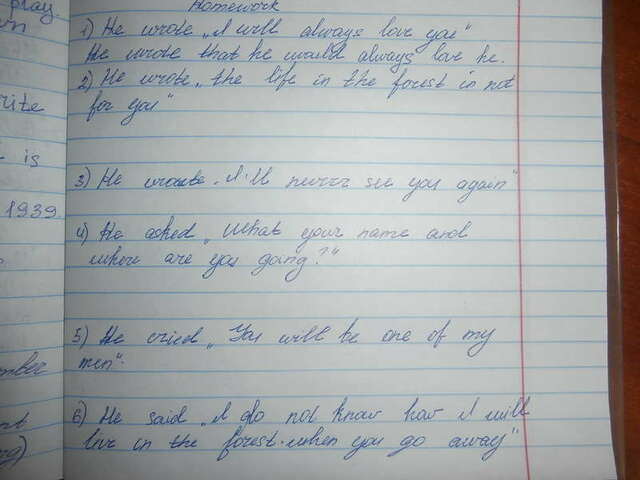 play.
Homework
1) He wrote „I will always love you"
He wrote that he would always love he.
2) He wrote „the life in the forest is not
for you"
rite
is
3) He wrote „I'll never see you again"
1939.
4) He asked „What your name and
where are you going?"
5) He cried „You will be one of my
men".
mber
6) He said „I do not know how I will
live in the forest when you go away"